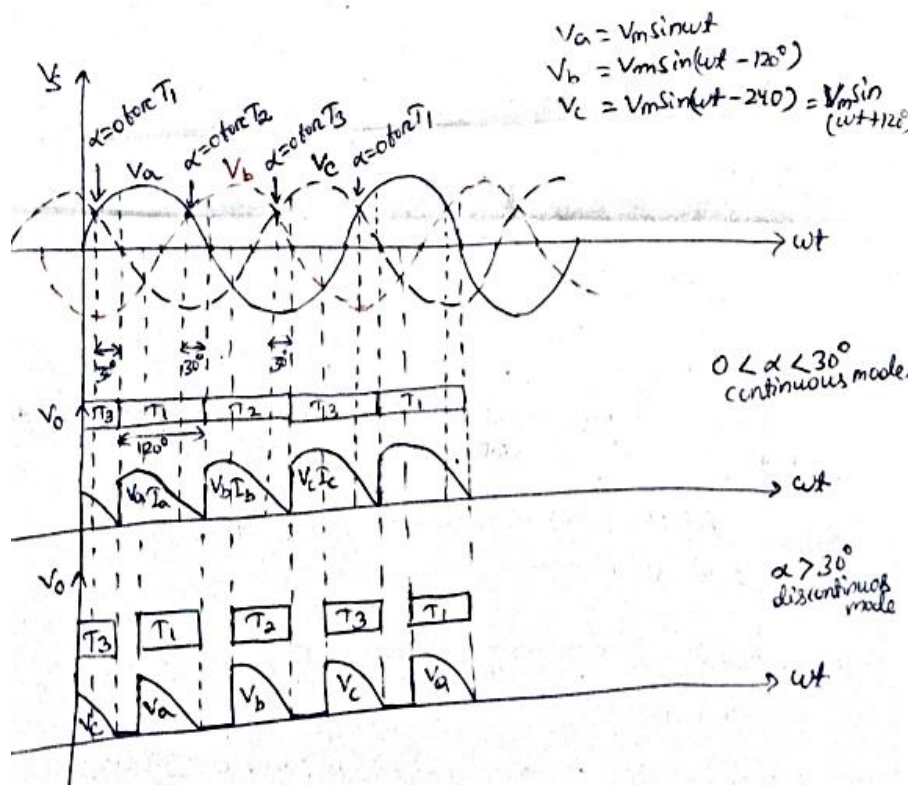 Va = Vm sinωt
Vb = Vm sin(ωt - 120°)
Vc = Vm sin(ωt - 240) = Vm sin
(ωt + 120°)
Vs
α=0 for T1
α=0 for T2
α=0 for T3
α=0 for T1
Va
Vb
Vc
ωt
30°
30°
30°
0 < α < 30°
continuous mode.
Vo
T3 T1 T2 T3 T1
120°
Va Ia Vb Ib Vc Ic
ωt
α > 30°
discontinuos
mode
Vo
T3 T1 T2 T3 T1
Vc Va Vb Vc Va
ωt